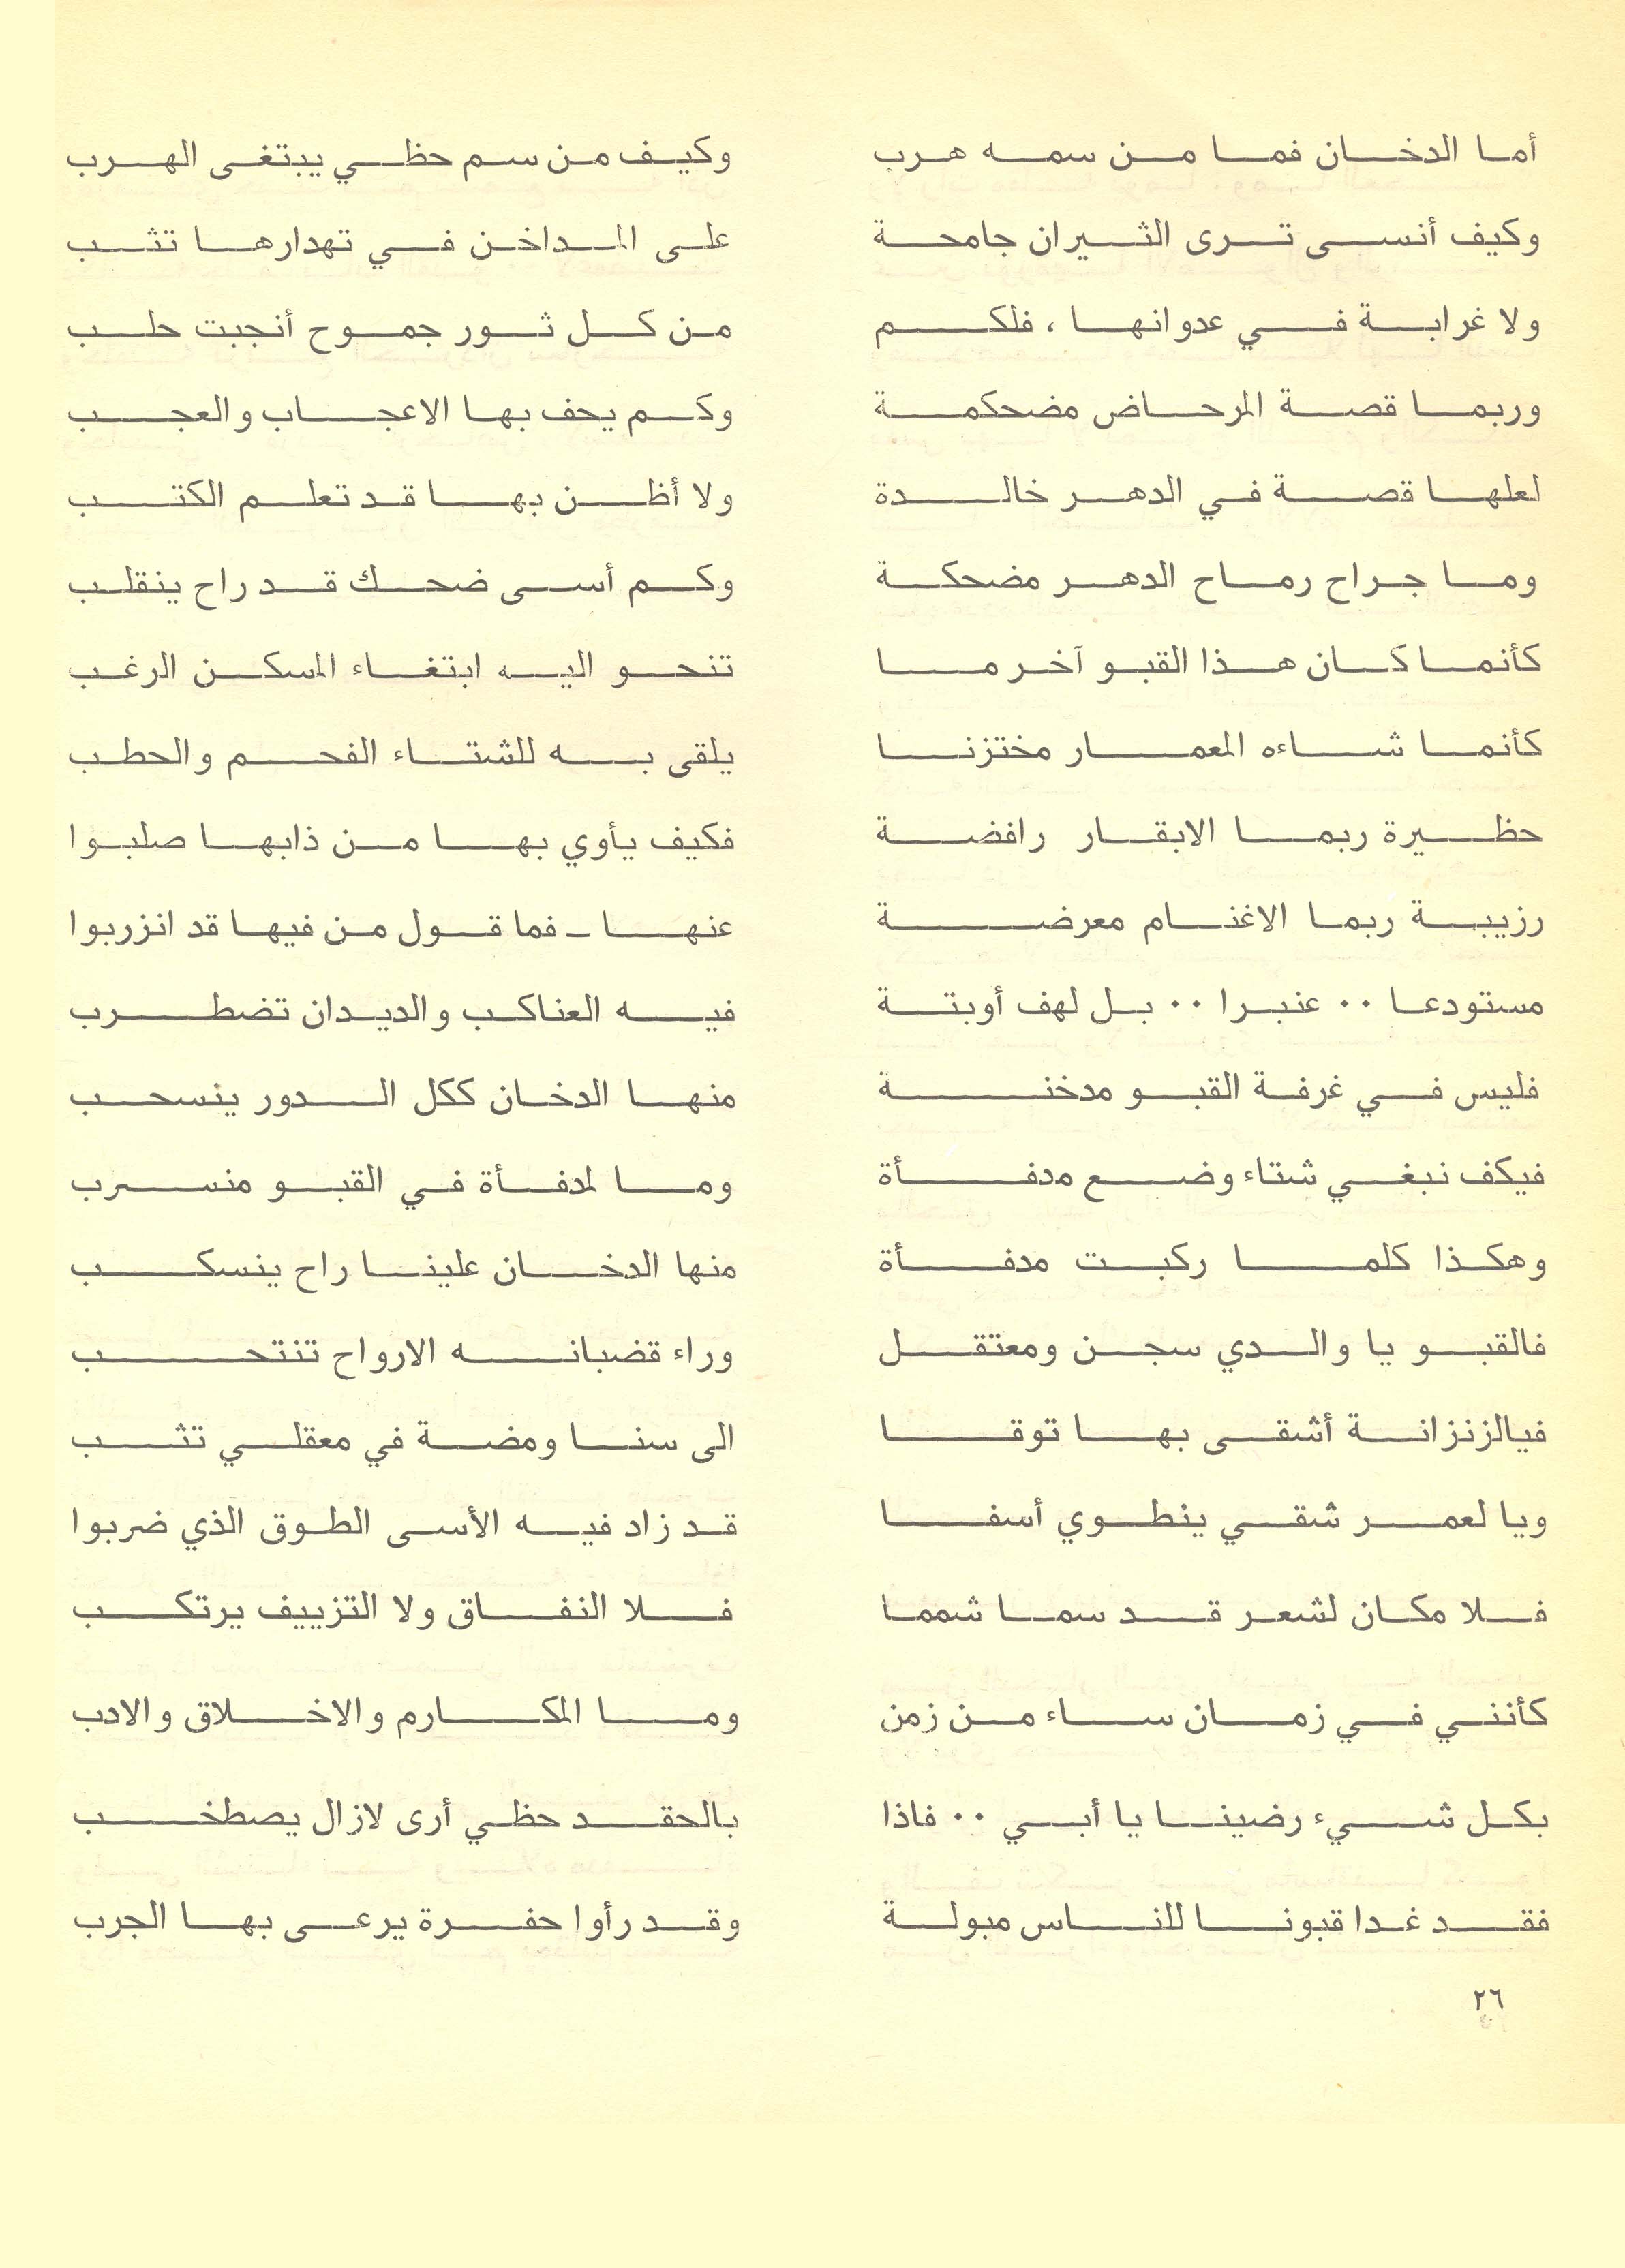 أما الدخان فما من سمه هرب وكيف من سم حظي يبتغى الهرب
وكيف أنسى ترى الثيران جامحة على المداخن في تهدارها تثب
ولا غرابة في عدوانها ، فلكم من كل ثور جموح أنجبت حلب
وربما قصة المرحاض مضحكمة وكم يحف بها الاعجاب والعجب
لعلها قصة في الدهر خالدة ولا أظن بها قد تعلم الكتب
وما جراح رماح الدهر مضحكة وكم أسى ضحك قد راح ينقلب
كأنما كان هذا القبو آخر ما تنحو اليه ابتغاء المسكن الرغب
كأنما شاءه المعمار مختزنا يلقى به للشتاء الفحم والحطب
حظيرة ربما الابقار رافضة فكيف يأوي بها من ذابها صلبوا
رزيبة ربما الاغنام معرضة عنها ـ فما قول من فيها قد انزربوا
مستودعا ٠٠ عنبرا ٠٠ بل لهف أوبتة فيه العناكب والديدان تضطرب
فليس في غرفة القبو مدخنة منها الدخان ككل الدور ينسحب
فيكف نبغي شتاء وضع مدفأة وما لمدفأة في القبو منسرب
وهكذا كلما ركبت مدفأة منها الدخان علينا راح ينسكب
فالقبو يا والدي سجن ومعتقل وراء قضبانه الارواح تنتحب
فيالزنزانة أشقى بها توقا الى سنا ومضة في معقلي تثب
ويا لعمر شقي ينطوي أسفا قد زاد فيه الأسى الطوق الذي ضربوا
فلا مكان لشعر قد سما شمما فلا النفاق ولا التزييف يرتكب
كأنني في زمان ساء من زمن وما المكارم والاخلاق والادب
بكل شيء رضينا يا أبي ٠٠ فاذا بالحقد حظي أرى لازال يصطخب
فقد غدا قبونا للناس مبولة وقد رأوا حفرة يرعى بها الجرب
٢٦